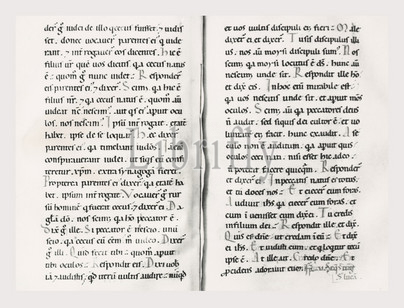 der̄ ḡ iudei de illo q̄ cecus fuisset ⁊ uidis
set. donec uocauer̄ parentes ei⁹ q̄ uide
rant. ⁊ int̄rogauer̄ eos dicentes. Hic ē
filius ur̄ quē uos dicitis q̄a cecus natus
ē: quom̄ g̊ nunc uidet: Responder̄
parentes ei⁹ ⁊ dixer̄. Scim⁹ q̄a hic ē
filius nr̄. ⁊ q̄a cecus natus ē. quom̄ aū
uideat nc̄ nescim⁹. aut q̄s ei⁹ aperuit ocu
los. nos nescim⁹. Ipsū int̄rogate. etatē
habet. ipse de se loquat̄. Hec dixer̄
parentes ei⁹. q̄a timebant iudeos. Iā eni
conspirauerant iudei. ut siq̄s eū confi
teretur xp̄m. extra synagogā fieret.
Propterea parentes ei⁹ dixer̄. q̄a etatē ha
bet. ipsum int̄rogate. Vocauer̄ g̊ rur
sū hominē q̄ fuerat cecus ⁊ dixer̄ ei. Da
gl̄a dō. nos scim⁹ q̄a h̄o peccator ē.
Dix̄ g̊ ille. Si peccator ē nescio. unū
scio. q̄a cecus cū eēm m̊ uideo. Dixer̄
g̊ illi. Quid fecit tibi: quom̄ aperuit
tibi oculos: Respondit eis. Dixi uob̄
ia ⁊ audistis. quid iterū uultis audire: nūq̄d
et uos uultis discipuli ei⁹ fieri: Male
dixer̄ ei et dixer̄. Tu sis discipulus ill
ius. nos aū moysi discipuli sum⁹. Nos
scim⁹ q̄a moysi locutus ē d̄s. hunc aū
nescim⁹ unde sit. Respondit ille hō
et dix̄ eis. In hoc eni mirabile est.
q̄a uos nescitis unde sit. et aperuit mōs
oculos. Scim⁹ aū q̄a peccatores deus
n̄ audit. sed siquis dei cultor ē. et uo
luntatē ei⁹ facit. hunc exaudit. A sc̄lo
n̄ est auditū q̄a aperuit quis
oculos ceci nati. nisi esset hic a deo.
n̄ poterat facere quicq̄m. Responder̄
et dixer̄ ei. In peccatis natus es totus.
et tu doces nos: Et eiecer̄ eum foras.
Audiuit ih̄s q̄a eiecer̄ eum foras. et
cum īuenisset eum dix̄ ei. Tu credis
in filium dei: Respondit ille et dix̄.
Quis est dn̄e. ut credā in eū: Et dix̄
ei ih̄s. Et uidisti eum. et q̄ loquit̄ tecū
ipse ē. At ille ait. Credo dn̄e. Et
procidens adorauit eum.
Librifly